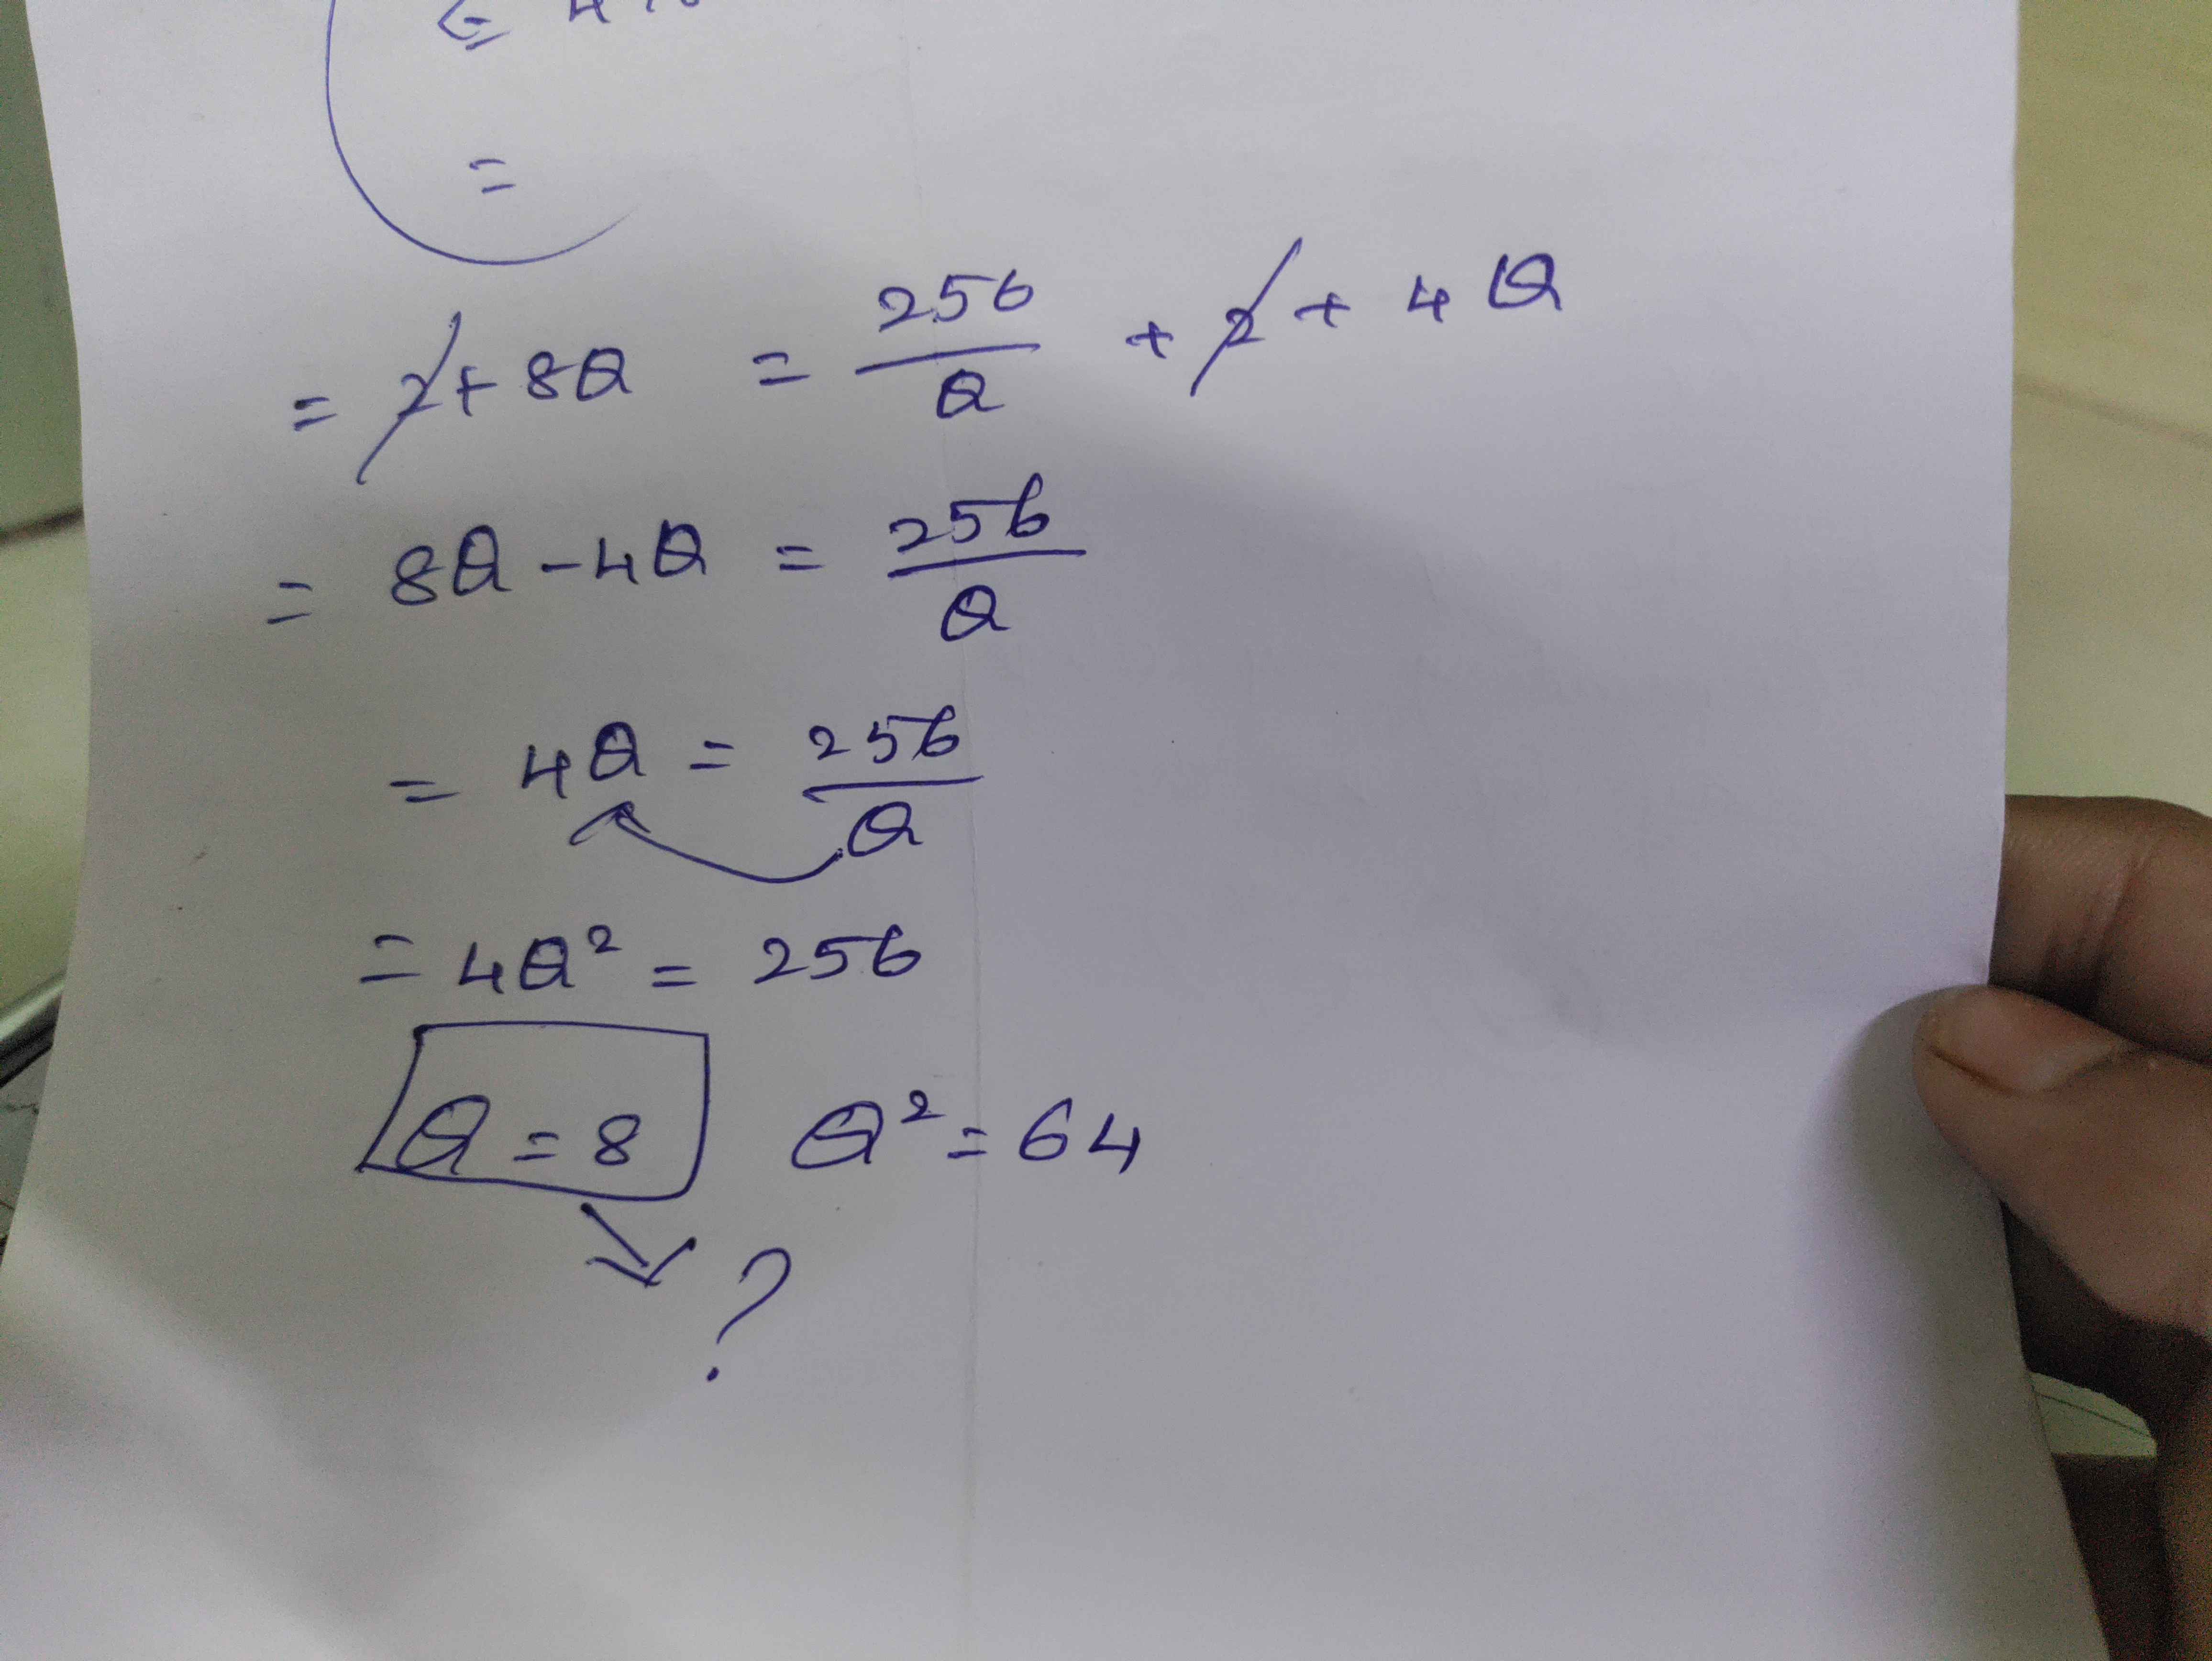 =
= 2 + 8Q = 256/Q + 2 + 4Q
= 8Q - 4Q = 256/Q
= 4Q = 256/Q
= 4Q² = 256
Q = 8 Q² = 64
?